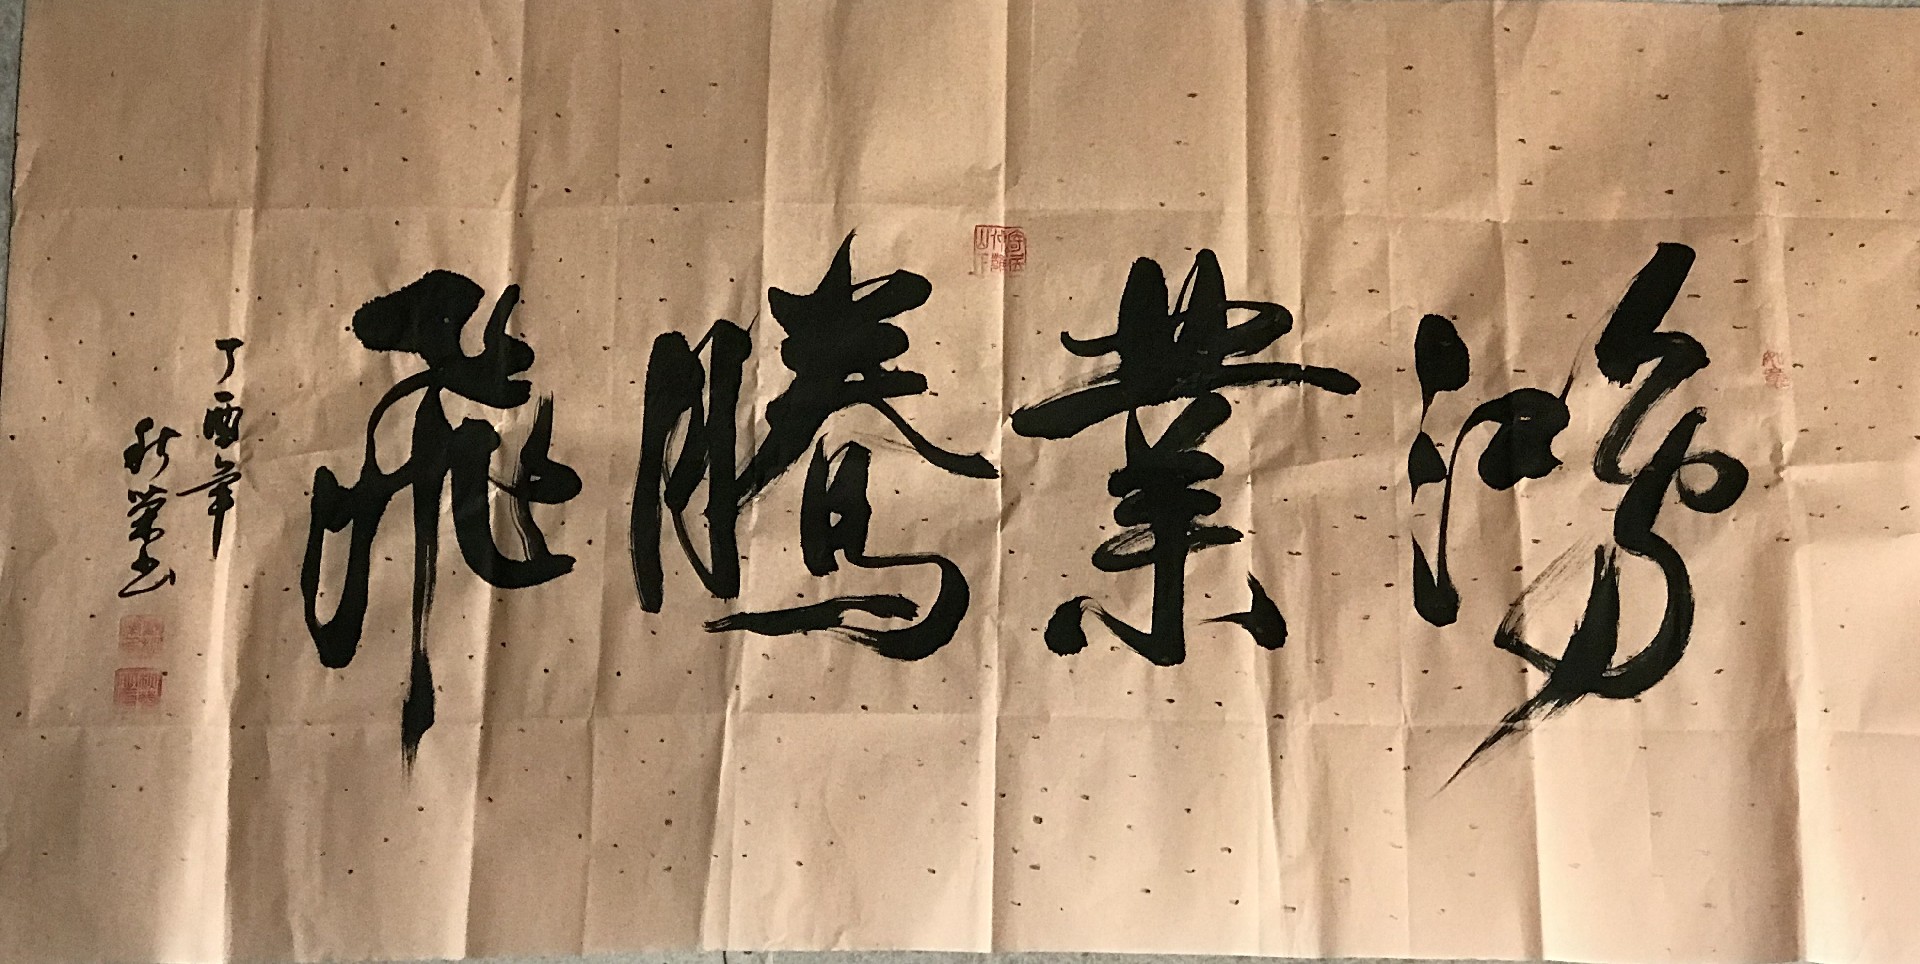 鴻業騰飛
丁酉年
秋榮书